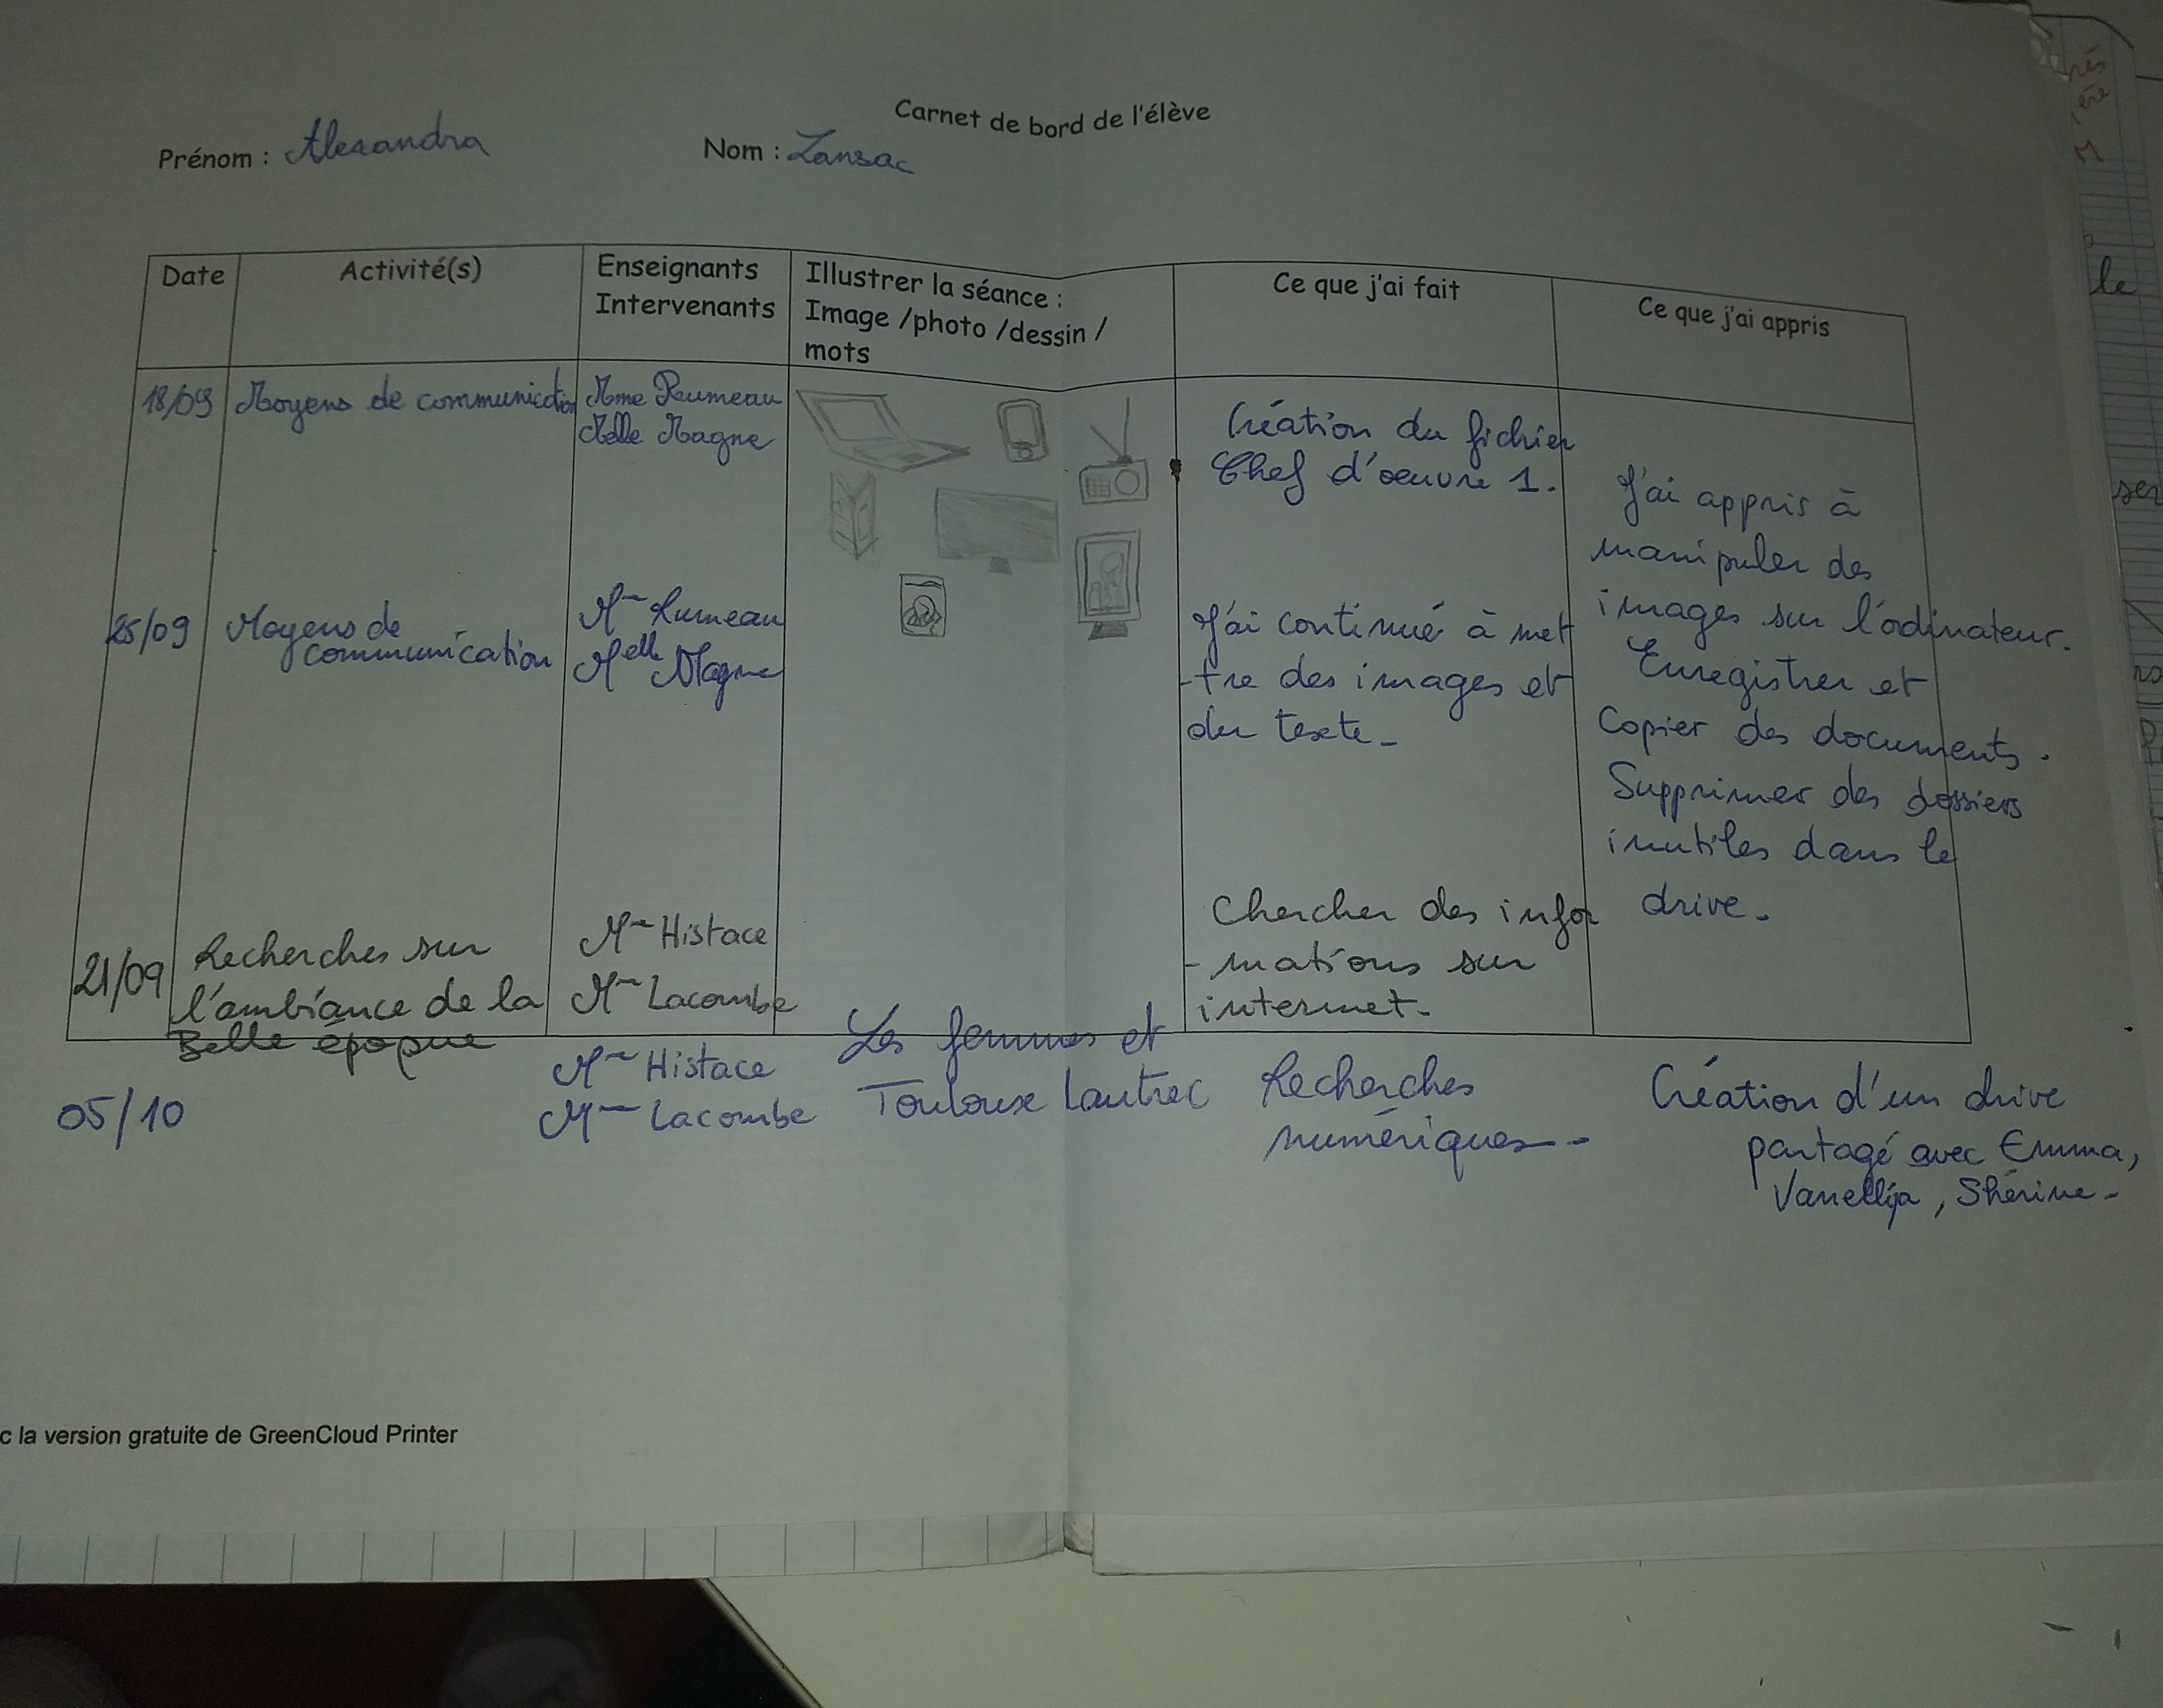 Carnet de bord de l'élève
Prénom : Alexandra
Nom : Lansac
Date
Activité(s)
Enseignants
Intervenants
Illustrer la séance :
Image /photo /dessin /
mots
Ce que j'ai fait
Ce que j'ai appris
18/09
Moyens de communication
Mme Rumeau
Melle Magne
Création du fichier
Chef d'oeuvre 1.
J'ai appris à
manipuler des
images sur l'odinateur.
Enregistrer et
Copier des documents.
Supprimer des dossiers
inutiles dans le
drive.
25/09
Moyens de
communication
Mme Rumeau
Melle Magne
J'ai continué à met
-tre des images et
du texte.
21/09
Recherches sur
l'ambiance de la
Belle époque
Mme Histace
Mme Lacombe
Chercher des infor
-mations sur
internet.
05/10
Mme Histace
Mme Lacombe
Les femmes et
Toulouse Lautrec
Recherches
numériques.
Création d'un drive
partagé avec Emma,
Shérine.
c la version gratuite de GreenCloud Printer
le